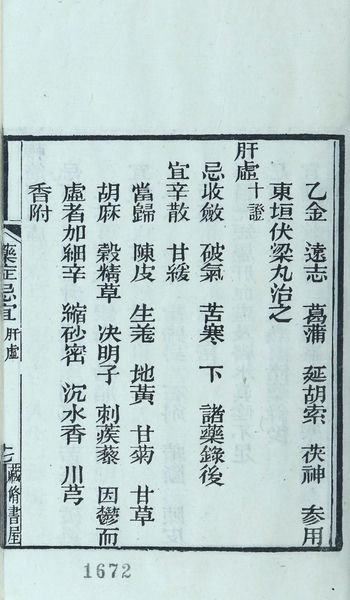 乙金 遠志 菖蒲 延胡索 茯神 參用
東垣伏梁丸治之
肝虛十證
忌收斂 破氣 苦寒 下 諸藥錄後
宜辛散 甘緩
當歸 陳皮 生羌 地黃 甘菊 甘草
胡麻 穀精草 決明子 刺蒺藜 因鬱而
虛者加細辛 縮砂密 沉水香 川芎
香附
藥症忌宜 肝虛
七 藏脩書屋
1672